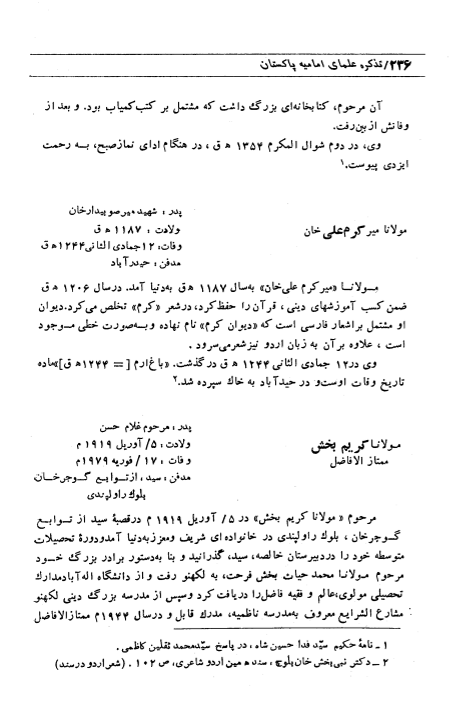 ۲۳۶/تذکره علمای امامیه پاکستان
آن مرحوم، کتابخانه‌ای بزرگ داشت که مشتمل بر کتب‌کمیاب بود. و بعد از
وفاتش ازبین‌رفت.
وی، در دوم شوال المکرم ۱۳۵۴ ه ق، در هنگام ادای نمازصبح، به رحمت
ایزدی پیوست.۱
مولانا میرکرم‌علی خان
پدر: شهیدمیرصوبیدارخان
ولادت: ۱۱۸۷ ه ق
وفات: ۱۲جمادی الثانی ۱۲۴۴ه ق
مدفن: حیدرآباد
مولانا «میرکرم علی‌خان» به‌سال ۱۱۸۷ ه ق به‌دنیا آمد. درسال ۱۲۰۶ ه ق
ضمن کسب آموزشهای دینی، قرآن را حفظ‌کرد، درشعر «کرم» تخلص می‌کرد. دیوان
او مشتمل براشعار فارسی است که «دیوان کرم» نام نهاده وبه‌صورت خطی موجود
است، علاوه برآن به زبان اردو نیزشعرمی‌سرود.
وی در۱۲ جمادی الثانی ۱۲۴۴ ه ق درگذشت. «باغ‌ارم [= ۱۲۴۴ه ق]» ماده
تاریخ وفات اوست‌و در حیدآباد به خاک سپرده شد.۲
مولانا کریم بخش
ممتاز الافاضل
پدر: مرحوم غلام حسن
ولادت: ۵/ آوریل ۱۹۱۹ م
وفات: ۱۷/ فوریه ۱۹۷۹م
مدفن: سید، ازتوابع گوجرخان
بلوک راولپندی
مرحوم «مولانا کریم بخش» در ۵/ آوریل ۱۹۱۹ م درقصبهٔ سید از توابع
گوجرخان، بلوک راولپندی در خانواده‌ای شریف ومعزز به‌دنیا آمدودورهٔ تحصیلات
متوسطه خود را دردبیرستان خالصه، سید، گذرانید و بنا به‌دستور برادر بزرگ خود
مرحوم مولانا محمد حیات بخش فرحت، به لکهنو رفت و از دانشگاه اله‌آبادمدارک
تحصیلی مولوی، عالم و فقیه فاضل‌را دریافت کرد وسپس از مدرسه بزرگ دینی لکهنو
مشارع الشرایع معروف به‌مدرسه ناظمیه، مدرک قابل و درسال ۱۹۴۴ م ممتازالافاضل
۱ ـ نامهٔ حکیم سیّد فدا حسین شاه، در پاسخ سیّدمحمد ثقلین کاظمی.
۲ ـ دکتر نبی‌بخش خان بلوچ، سنده مین اردو شاعری، ص ۱۰۲. (شعراردو درسند)